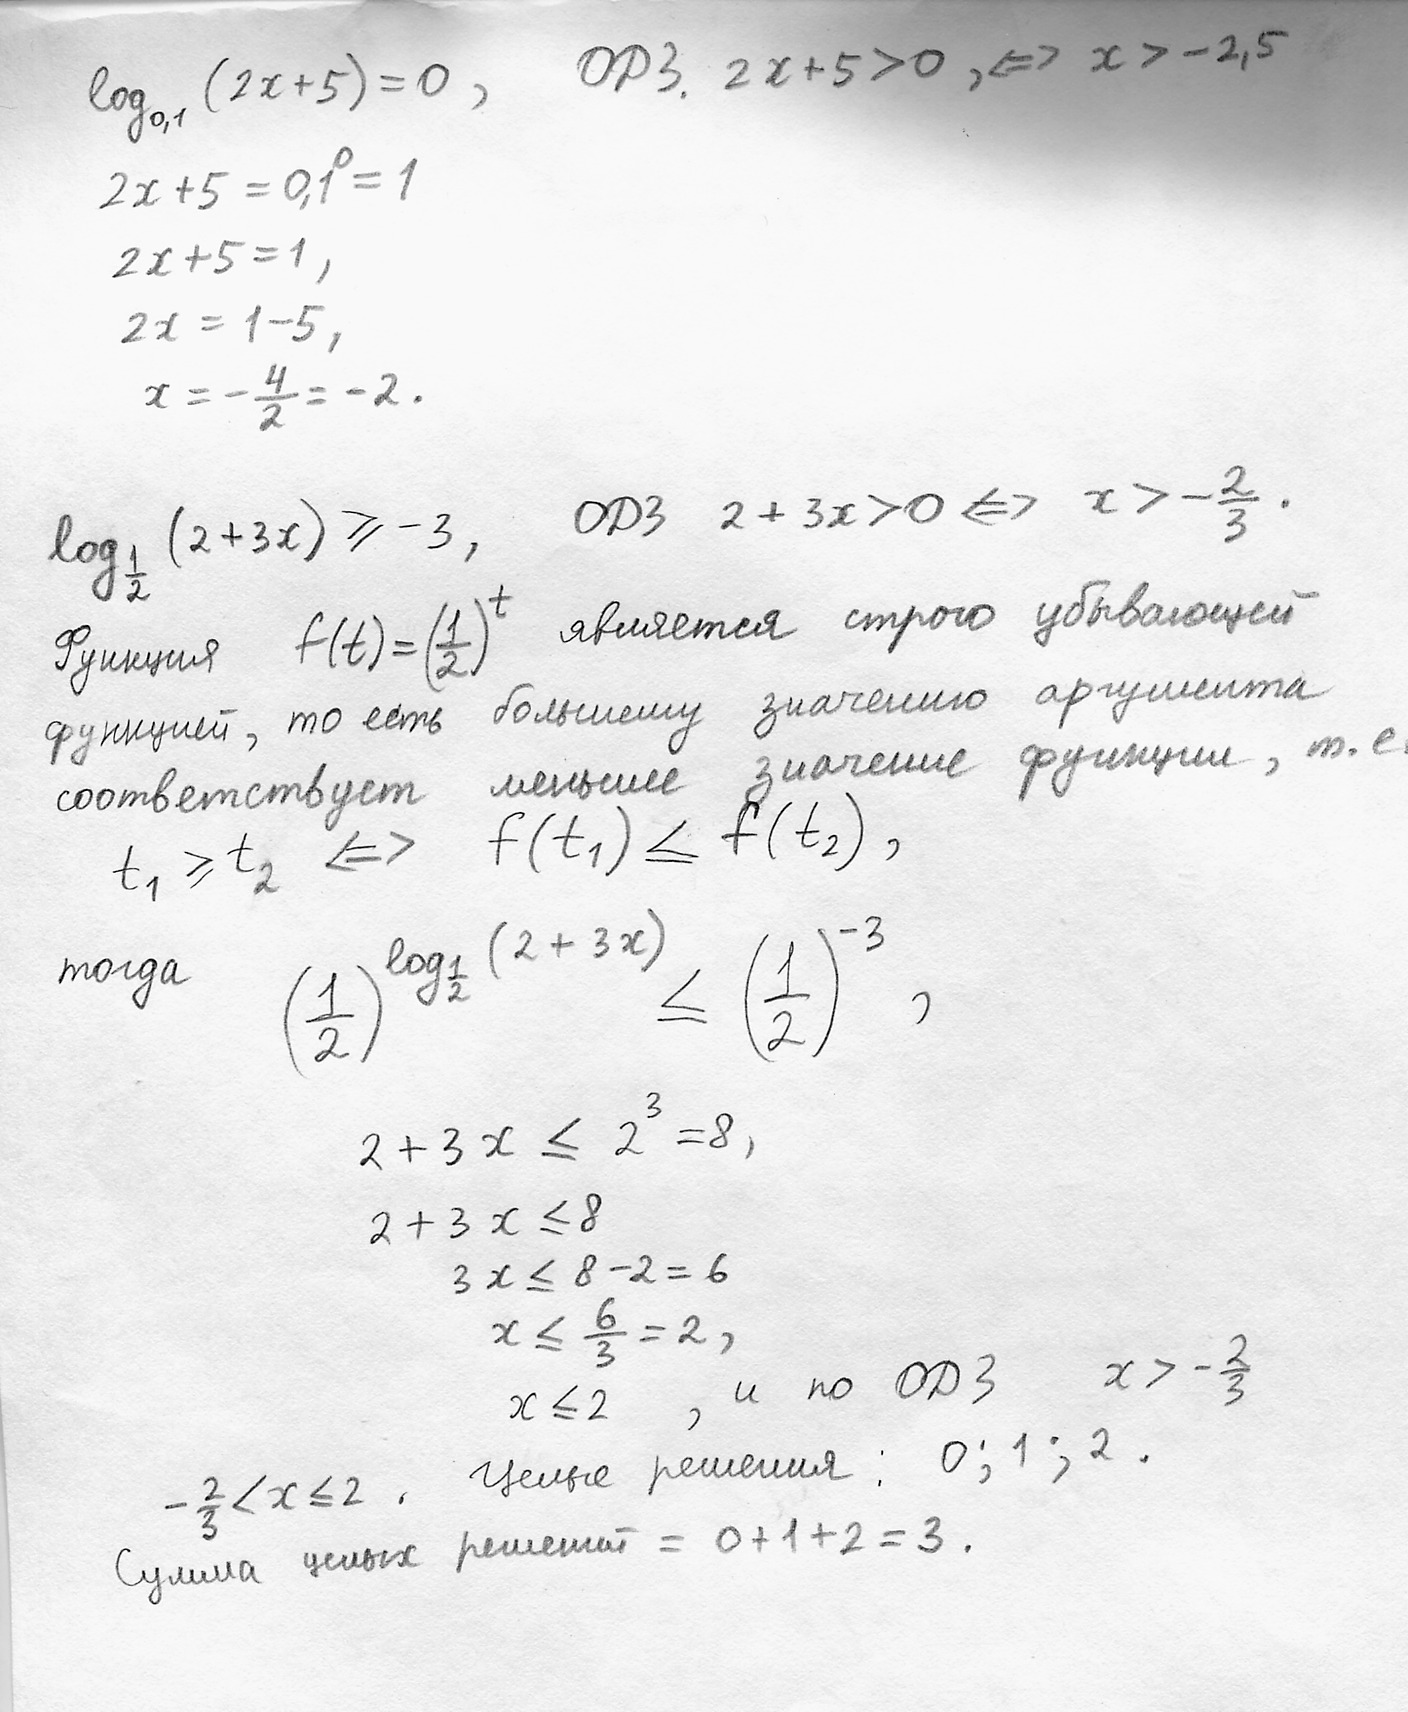 log_{0,1} (2x+5) = 0, ОДЗ. 2x+5>0, ⇔ x > -2,5
2x+5 = 0,1^0 = 1
2x+5 = 1,
2x = 1-5,
x = -4/2 = -2.
log_{1/2} (2+3x) ⩾ -3, ОДЗ 2+3x>0 ⇔ x > -2/3.
Функция f(t) = (1/2)^t является строго убывающей
функцией, то есть большему значению аргумента
соответствует меньшее значение функции, т.е.
t_1 ⩾ t_2 ⇔ f(t_1) ≤ f(t_2),
тогда (1/2)^{log_{1/2} (2+3x)} ≤ (1/2)^{-3},
2+3x ≤ 2^3 = 8,
2+3x ≤ 8
3x ≤ 8-2 = 6
x ≤ 6/3 = 2,
x ≤ 2, и по ОДЗ x > -2/3
-2/3 < x ≤ 2. Целые решения: 0; 1; 2.
Сумма целых решений = 0+1+2 = 3.